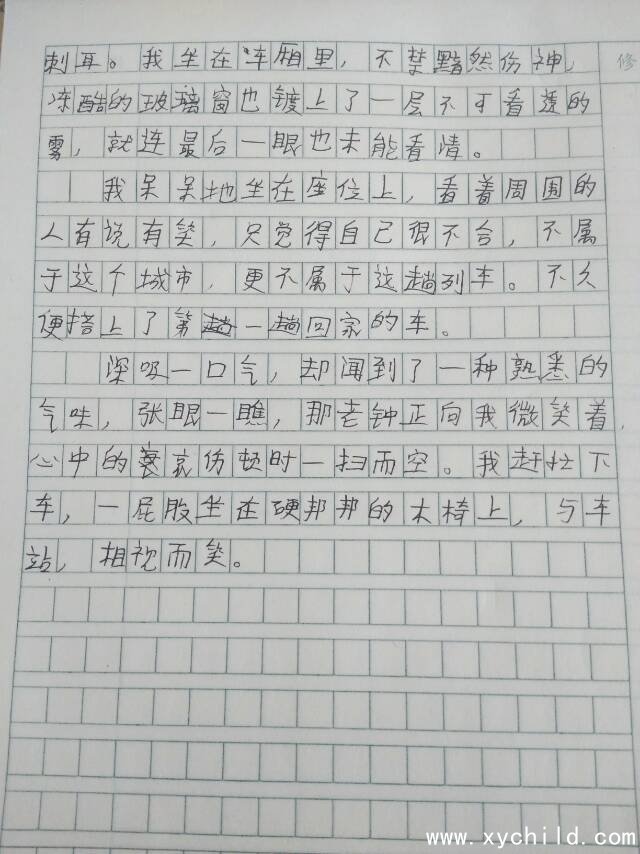 刺耳。我坐在车厢里，不禁黯然伤神，
冻酷的玻璃窗也镀上了一层不可看透的
雾，就连最后一眼也未能看清。
我呆呆地坐在座位上，看着周围的
人有说有笑，只觉得自己很不合，不属
于这个城市，更不属于这趟列车。不久
便搭上了第一趟回家的车。
深吸一口气，却闻到了一种熟悉的
气味，张眼一瞧，那老钟正向我微笑着，
心中的哀伤顿时一扫而空。我赶忙下
车，一屁股坐在硬邦邦的木椅上，与车
站，相视而笑。
修
www.xychild.com